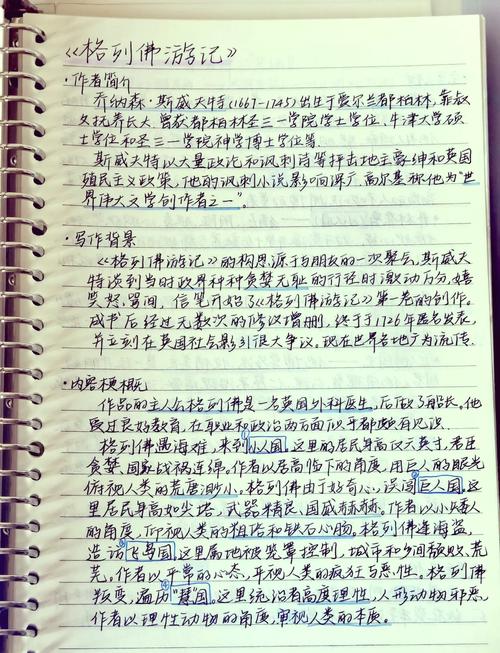 《格列佛游记》
·作者简介
乔纳森·斯威夫特(1667-1745)出生于爱尔兰都柏林,靠叔
父抚养长大,曾获都柏林圣三一学院学士学位、牛津大学硕
士学位和圣三一学院神学博士学位等。
斯威夫特以大量政论和讽刺诗等抨击地主豪绅和英国
殖民主义政策,他的讽刺小说影响深广,高尔基称他为“世
界伟大文学创作者之一”。
·写作背景
《格列佛游记》的构思源于与朋友的一次聚会,斯威夫
特谈到当时政界种种贪婪无耻的行径时激动万分,嬉
笑怒骂间,信笔开始了《格列佛游记》第一卷的创作。
成书后经过无数次的修议增删,终于于1726年匿名发表,
并立刻在英国社会影引很大争议。现在世界各地广为流传。
·内容梗概
作品的主人公格列佛是一名英国外科医生,后做了船长。他
受过良好教育,在职业和政治两方面似乎都颇有见识。
格列佛遇海难,来到小人国。这里的居民身高仅六英寸,君臣
贪婪,国家战祸连绵。作者以居高临下的角度,用巨人的眼光
俯视人类的荒唐渺小。格列佛由于好奇心,误闯巨人国。这
里居民身高如尖塔,武器精良、国威赫赫。作者以小矮人
的角度,仰视人类的粗糙和铁石心肠。格列佛逢海盗,
造访飞岛国。这里属地被笼罩控制,城市和乡间颓败、荒
芜。作者以平常的心态,平视人类的疯狂与恶性。格列佛
叛变,遍历“慧”国。这里统治者高度理性,人形动物邪恶。
作者以理性动物的角度,审视人类的本质。